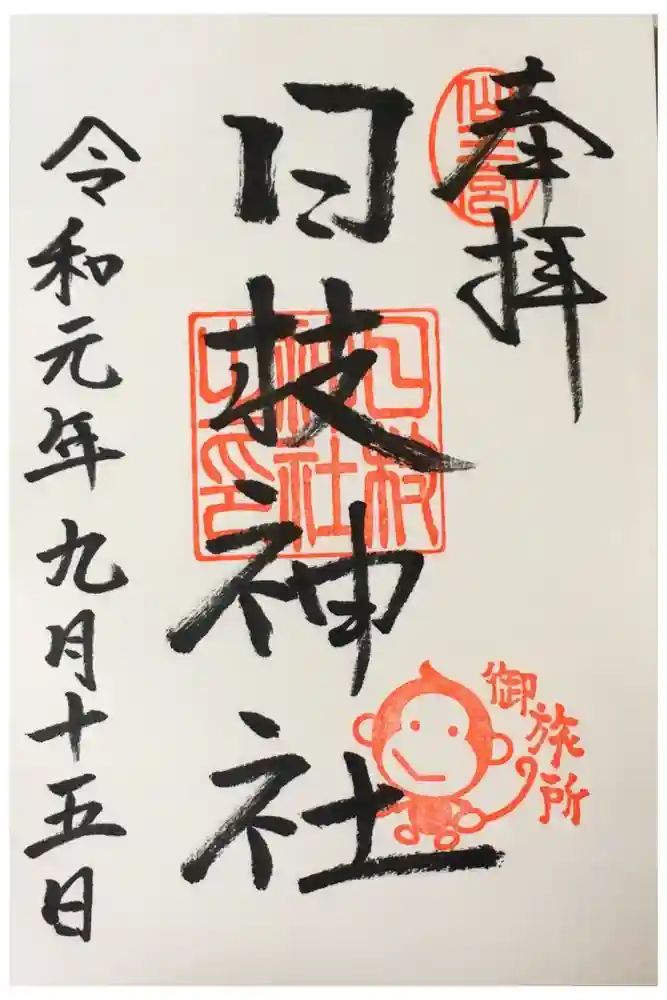 奉拝
日枝神社
日枝
神社
之印
御旅所
令和元年九月十五日